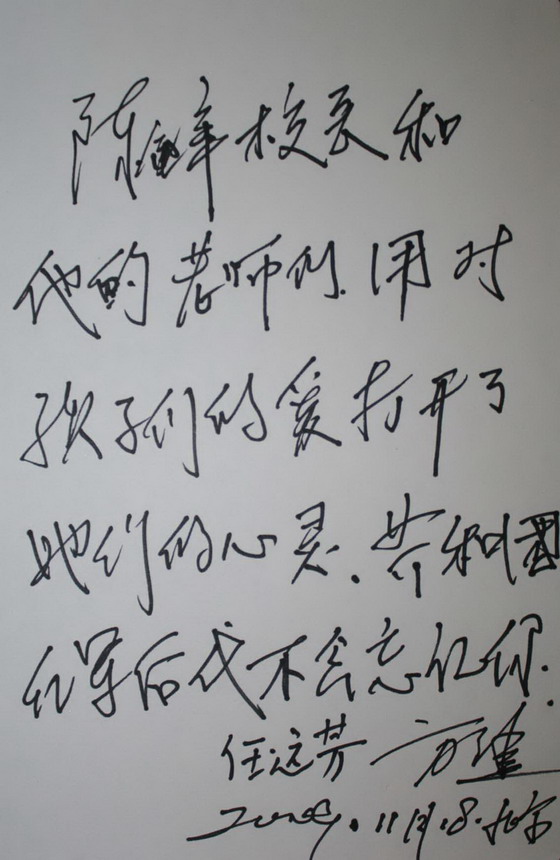 陈 校长和
他的老师们.用对
孩子们的爱打开了
她们的心灵.共和国
红军后代不会忘记你.
任远芳 方建
11月.8.北京